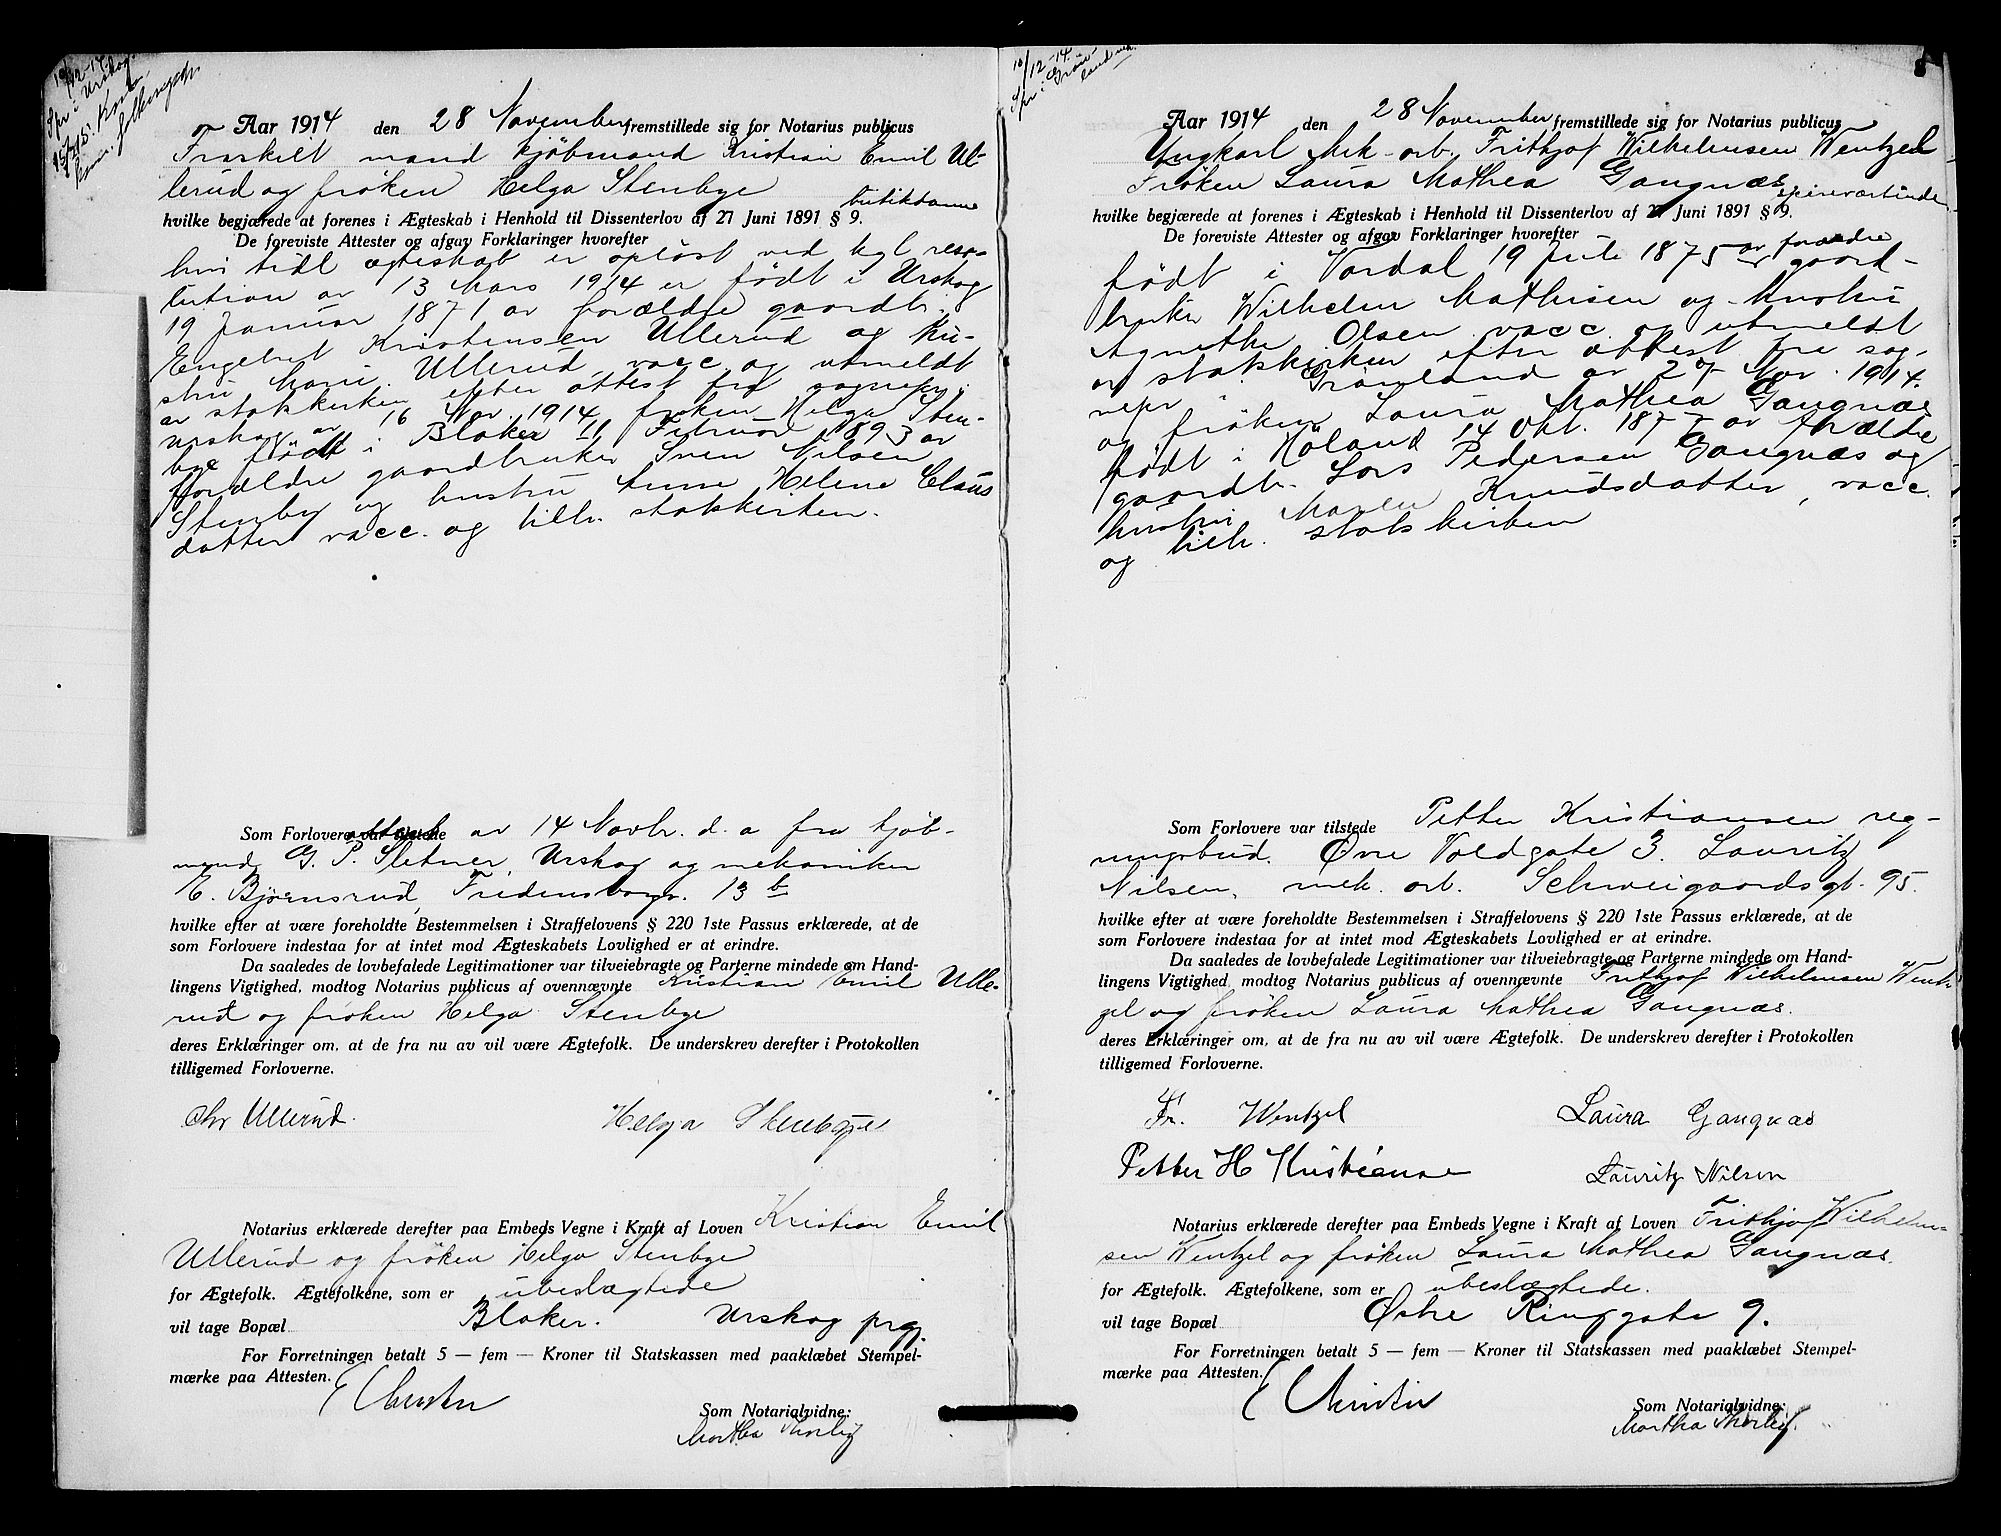 10/12-14.
Spr i Urskog
Aar 1914 den 28 November fremstillede sig for Notarius publicus
Fraskilt mand kjöbmand Kristian Emil Ul-
lerud og fröken Helga Stenbye butikdame
hvilke begjærede at forenes i Ægteskab i Henhold til Dissenterlov af 27 Juni 1891 § 9.
De foreviste Attester og afgav Forklaringer hvorefter
hvis tidl ægteskab er oplöst ved kgl reso-
lution av 13 Mars 1914 er födt i Urskog
19 Januar 1871 av forældre gaardbr.
Engebret Kristensen Ullerud og hu-
stru Marie Ullerud, vacc. og utmeldt
av statskirken efter attest fra sognepr. i
Urskog av 16 Nov. 1914, fröken Helga Sten-
bye födt i Blaker 11 Februar 1893 av
forældre gaardbruker Sven Nilsen
Stenby og hustru Anne Helene Claus
datter vacc. og tilh. statskirken.
Som Forlovere var tilstede attest av 14 Novbr. d. a fra kjöb-
mand G. P. Sletner, Urskog og mekaniker
E. Björnsrud, Fredensborgv. 13 b
hvilke efter at være foreholdte Bestemmelsen i Straffelovens § 220 1ste Passus erklærede, at de
som Forlovere indestaa for at intet mod Ægteskabets Lovlighed er at erindre.
Da saaledes de lovbefalede Legitimationer var tilveiebragte og Parterne mindede om Hand-
lingens Vigtighed, modtog Notarius publicus af ovennævnte Kristian Emil Ulle-
rud og fröken Helga Stenbye
deres Erklæringer om, at de fra nu av vil være Ægtefolk. De underskrev derefter i Protokollen
tilligemed Forloverne.
Chr Ullerud. Helga Stenbye
Notarius erklærede derefter paa Embeds Vegne i Kraft af Loven Kristian Emil
Ullerud og fröken Helga Stenbye
for Ægtefolk. Ægtefolkene, som er ubeslægtede
vil tage Bopæl Blaker. Urskog prgj.
For Forretningen betalt 5 — fem — Kroner til Statskassen med paaklæbet Stempel-
mærke paa Attesten.
Som Notarialvidne:
Martha
10/12-14.
Spr i Grön-
land
8
Aar 1914 den 28 November fremstillede sig for Notarius publicus
Ungkarl Mek-arb. Frithjof Wilhelmsen Wentzel
Fröken Laura Mathea Gangnæs, spinerarbinde
hvilke begjærede at forenes i Ægteskab i Henhold til Dissenterlov af 27 Juni 1891 § 9.
De foreviste Attester og afgav Forklaringer hvorefter
födt i Vardal 19 Juli 1875 av forældre gaard-
bruker Wilhelm Mathisen og hustru
Agnethe Olsen vacc. og utmeldt
av statskirken efter attest fra sog-
nepr Grönland av 27 Nov. 1914.
og fröken Laura Mathea Gangnæs
födt i Höland 14 Okt. 1877 av forældre
gaardbr. Lars Pedersen Gangnæs og
hustru Maren Knudsdatter, vacc.
og tilh. statskirken
Som Forlovere var tilstede Petter Kristiansen reg-
ningsbud. Övre Voldgate 3. Lauritz
Nilsen, mek. arb. Schweigaardsgt. 95.
hvilke efter at være foreholdte Bestemmelsen i Straffelovens § 220 1ste Passus erklærede, at de
som Forlovere indestaa for at intet mod Ægteskabets Lovlighed er at erindre.
Da saaledes de lovbefalede Legitimationer var tilveiebragte og Parterne mindede om Hand-
lingens Vigtighed, modtog Notarius publicus af ovennævnte Frithjof Wilhelmsen Went-
zel og fröken Laura Mathea Gangnæs.
deres Erklæringer om, at de fra nu av vil være Ægtefolk. De underskrev derefter i Protokollen
tilligemed Forloverne.
Fr. Wentzel Laura Gangnæs
Petter H Kristianse Lauritz Nilsen
Notarius erklærede derefter paa Embeds Vegne i Kraft af Loven Frithjof Wilhelm-
sen Wentzel og fröken Laura Mathea Gangnæs.
for Ægtefolk. Ægtefolkene, som er ubeslægtede.
vil tage Bopæl Östre Ringgate 9.
For Forretningen betalt 5 — fem — Kroner til Statskassen med paaklæbet Stempel-
mærke paa Attesten.
Som Notarialvidne:
Martha